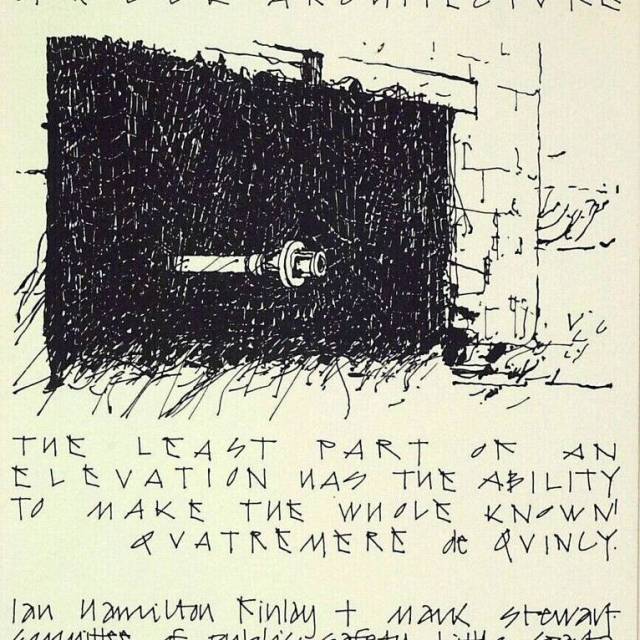 ARCHITECTURE
THE LEAST PART OF AN
ELEVATION HAS THE ABILITY
TO MAKE THE WHOLE KNOWN'
QVATREMERE de QVINCY.
Ian Hamilton Finlay + Mark Stewart.
committee of public safety little sparta